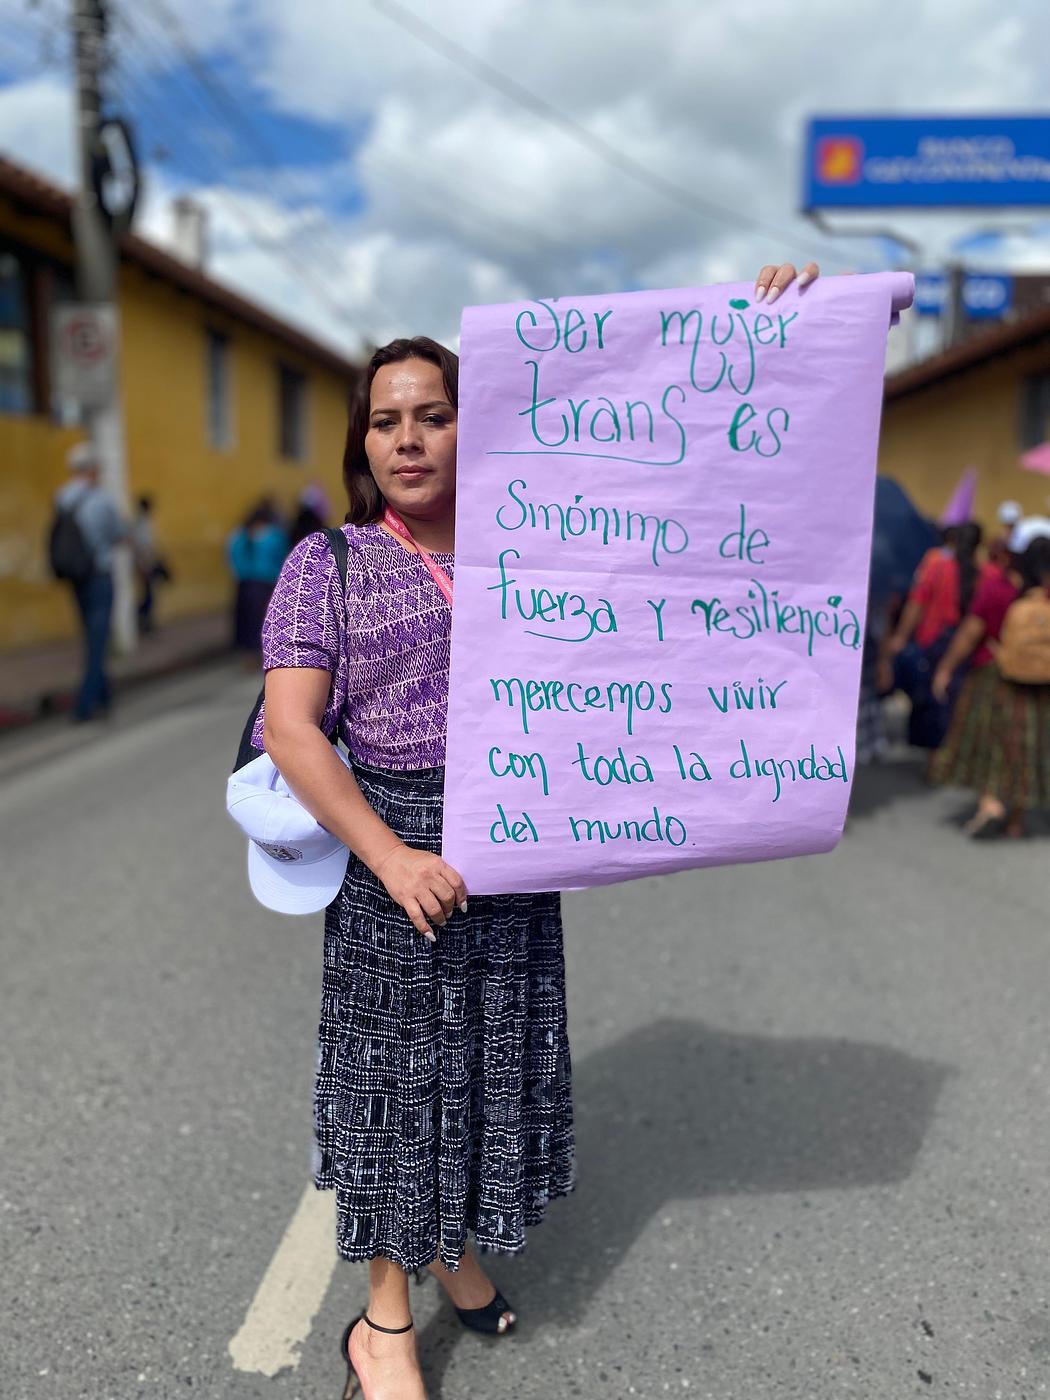 Ser mujer
trans es
Sinónimo de
fuerza y resiliencia
merecemos vivir
con toda la dignidad
del mundo.
BANCO